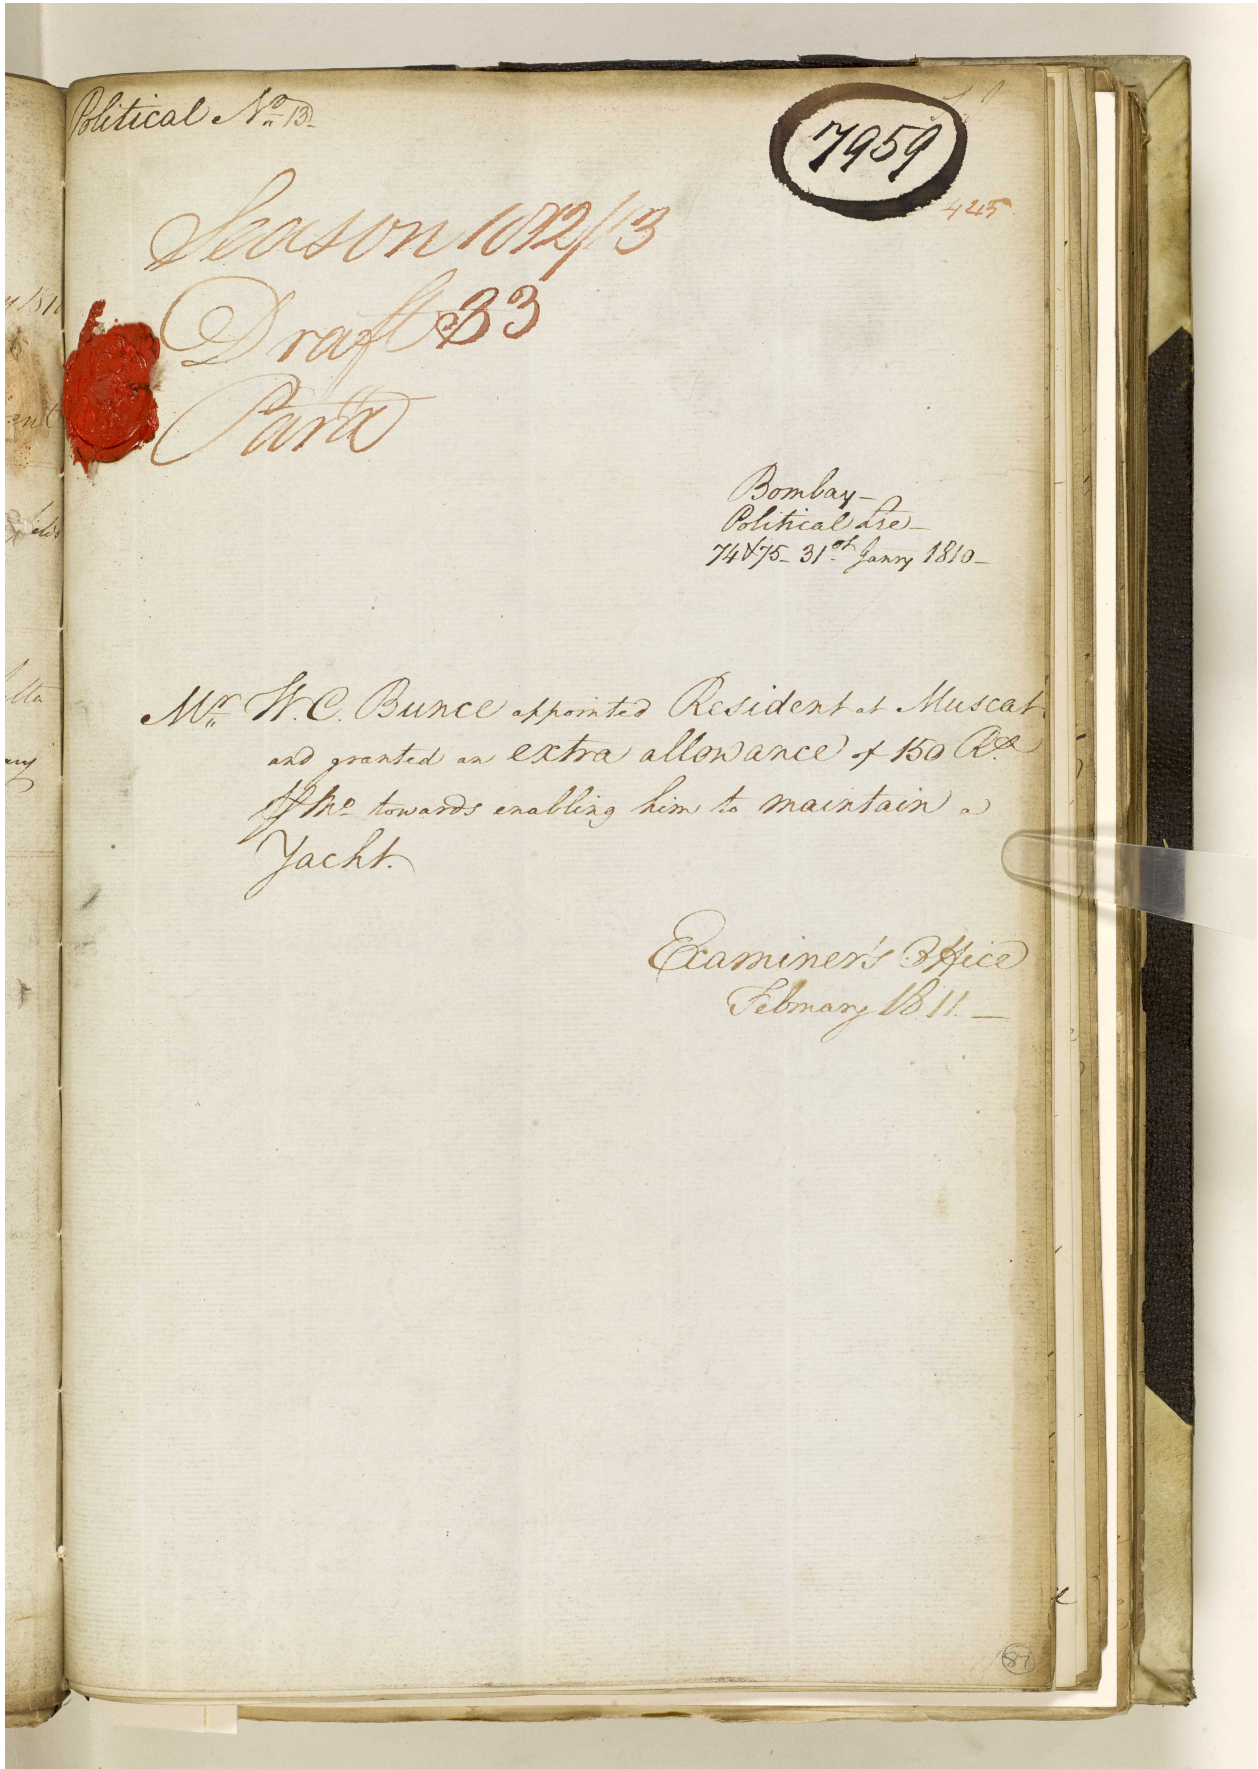 Political No. 13
7959
445
Season 1812/13
Draft 33
Para
Bombay
Political Lre
74 & 75 - 31st Janry 1810
Mr. W. C. Bunce appointed Resident at Muscat
and granted an extra allowance of 150 Rs.
P Mo towards enabling him to maintain a
Yacht.
Examiner's Office
February 1811